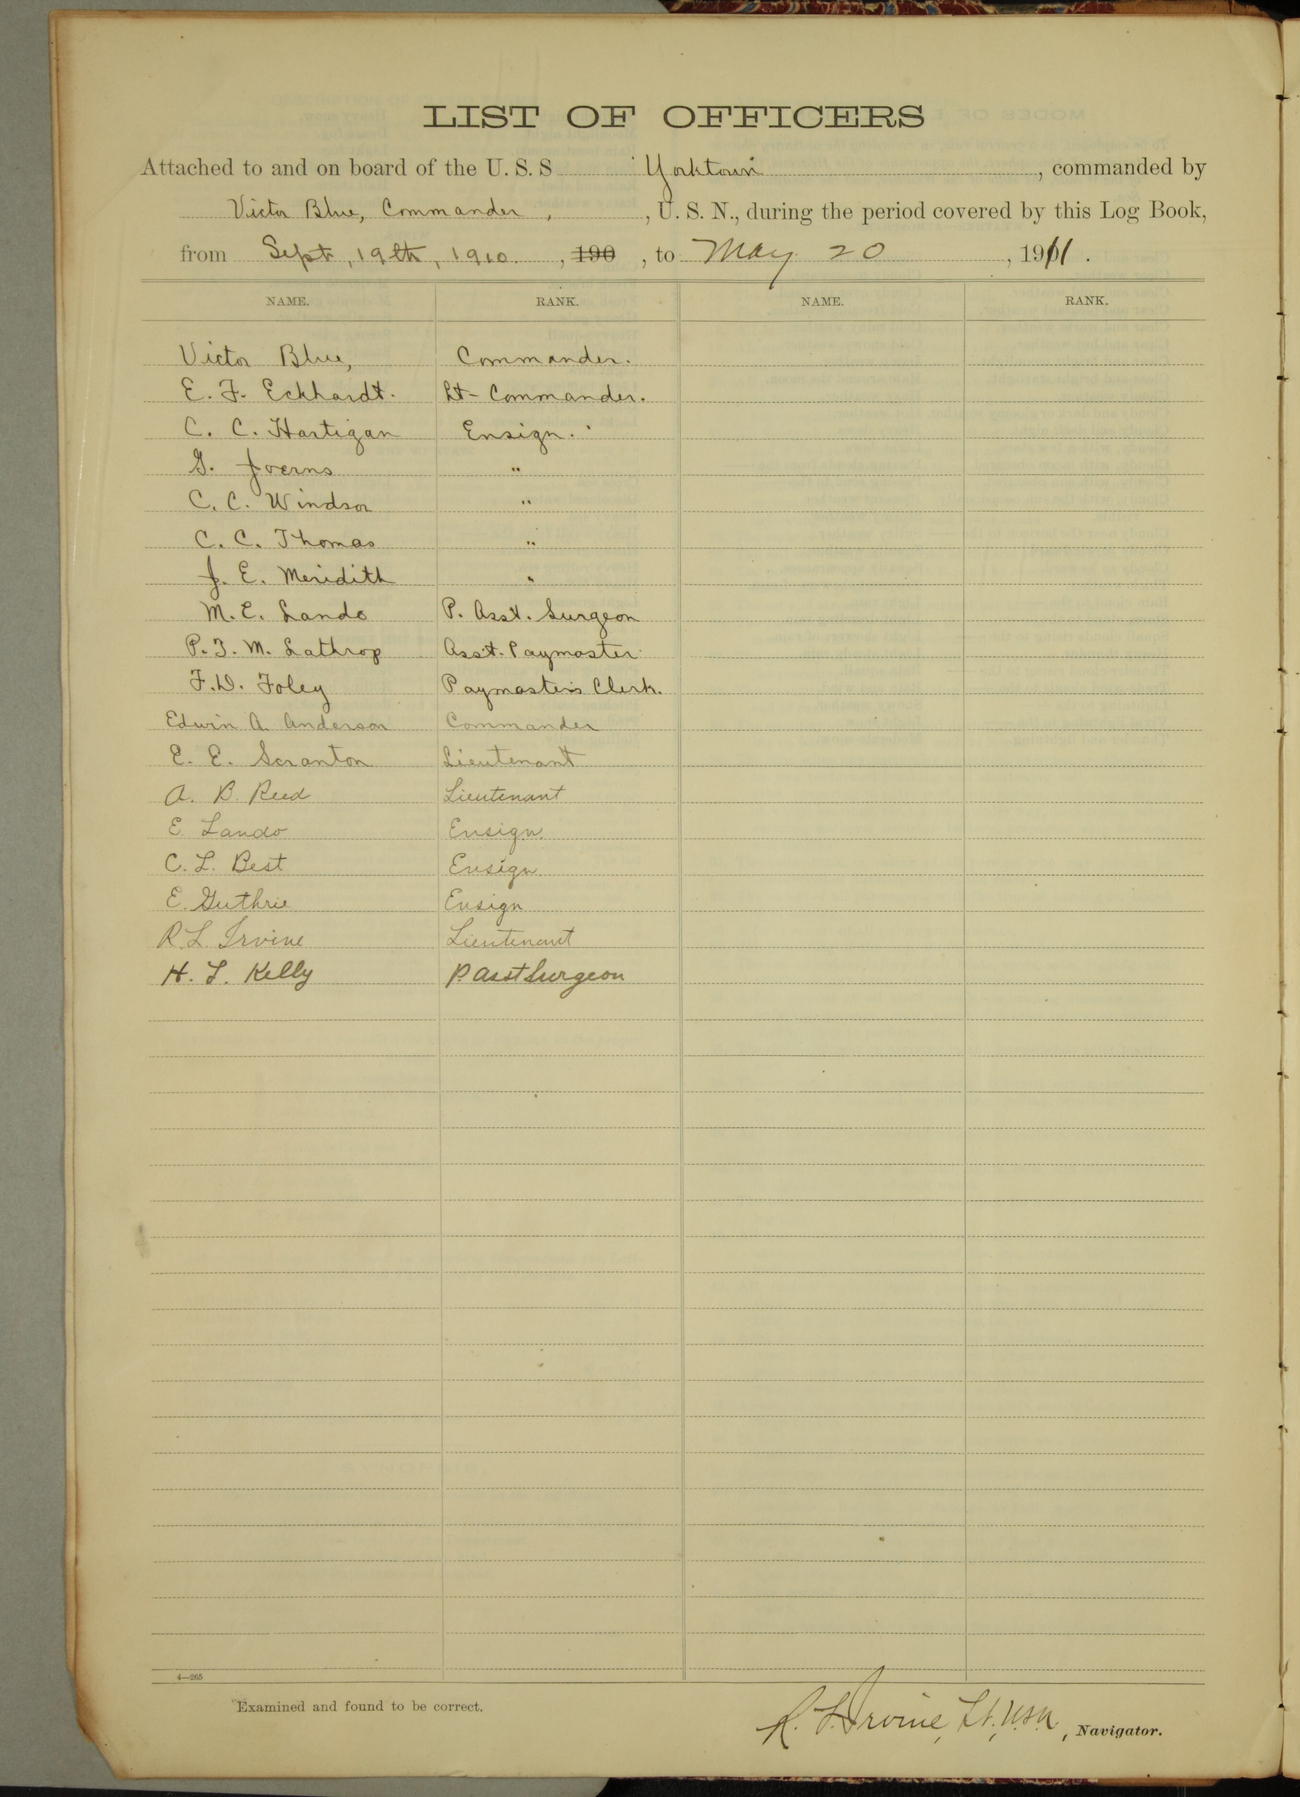 LIST OF OFFICERS
Attached to and on board of the U. S. S Yorktown, commanded by
Victor Blue, Commander, , U. S. N., during the period covered by this Log Book,
from Sept, 19th, 1910, 190 , to May 20, 1911.
NAME. RANK. NAME. RANK.
Victor Blue, Commander.
E. F. Eckhardt. Lt-Commander.
C. C. Hartigan Ensign.
G. Joerns "
C. C. Windsor "
C. C. Thomas "
J. E. Meridith "
M. E. Lando P. Asst. Surgeon
P. T. M. Lathrop Asst. Paymaster
F. D. Foley Paymaster's Clerk.
Edwin A. Anderson Commander
E. E. Scranton Lieutenant
A. B. Reed Lieutenant
E. Lando Ensign.
C. L. Best Ensign
E. Guthrie Ensign
R. L. Irvine Lieutenant
H. L. Kelly P. Asst Surgeon
4—265
Examined and found to be correct.
R. L. Irvine, Lt., U.S.N., Navigator.